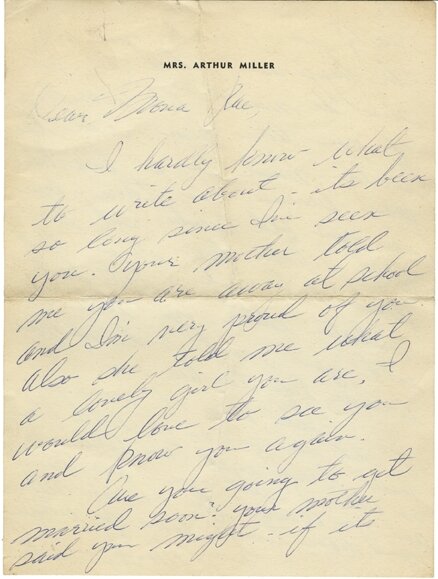 MRS. ARTHUR MILLER
Dear Mona Rae,
I hardly know what
to write about - its been
so long since I've seen
you. Your mother told
me you are away at school
and I'm very proud of you
Also she told me what
a lovely girl you are, I
would love to see you
and know you again.
Are you going to get
married soon? your mother
said you might - if its